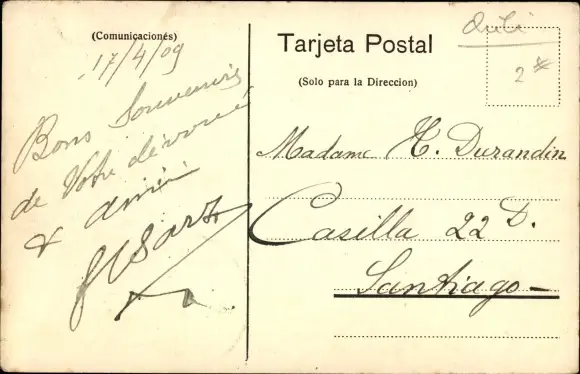 (Comunicaciones)
17/4/09
Bons Souvenirs
de Votre dévoué
& ami
Tarjeta Postal
(Solo para la Direccion)
2
Madame T. Durandin
Casilla 22 D.
Santiago